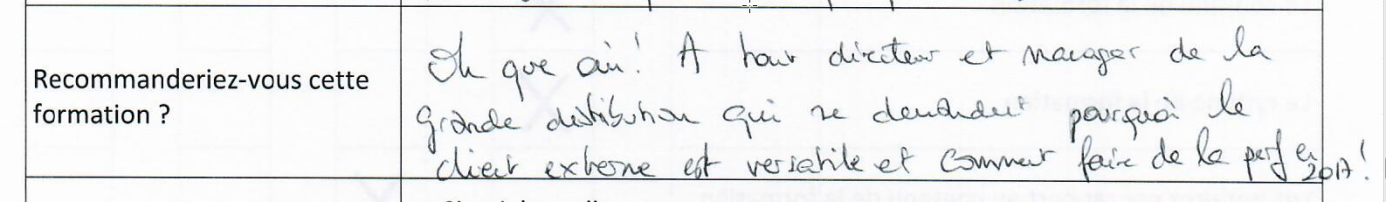 Recommanderiez-vous cette
formation ?
Oh que oui! A tout directeur et manager de la
grande distribution qui se demandent pourquoi le
client externe est versatile et comment faire de la perf en
2017!